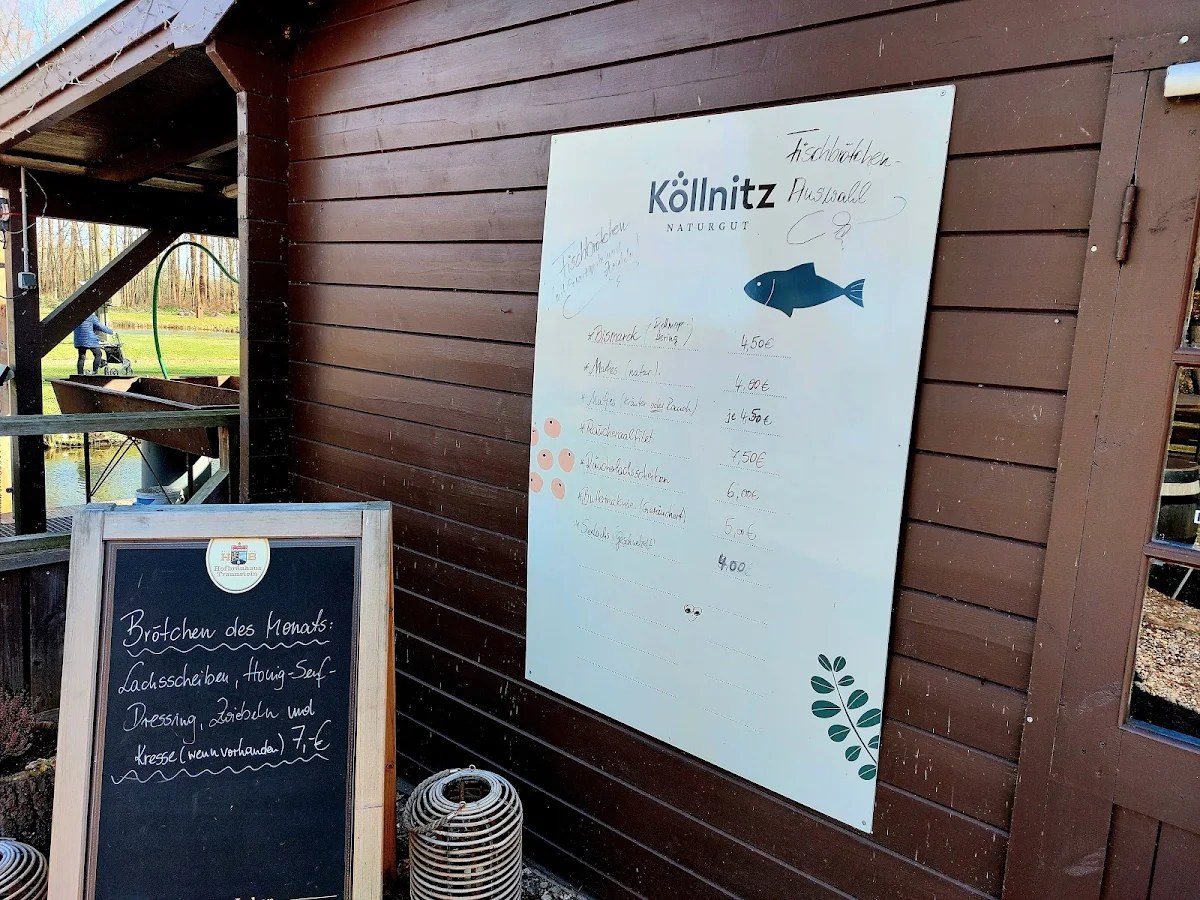 Köllnitz
NATURGUT
Fischbrötchen-
Auswahl
Fischbrötchen
*Bismarck
4,50€
*Matjes (natur)
4,00€
*Matjes (Kräuter oder Rauch)
je 4,50€
*Räucheraalfilet
7,50€
*Räucherlachsscheiben
6,00€
*Buttermakrele (Geräuchert)
5,00€
*Seelachs
4,00€
HB
Hofbräuhaus
Traunstein
Brötchen des Monats:
Lachsscheiben, Honig-Senf-
Dressing, Zwiebeln und
Kresse (wenn vorhanden) 7,-€